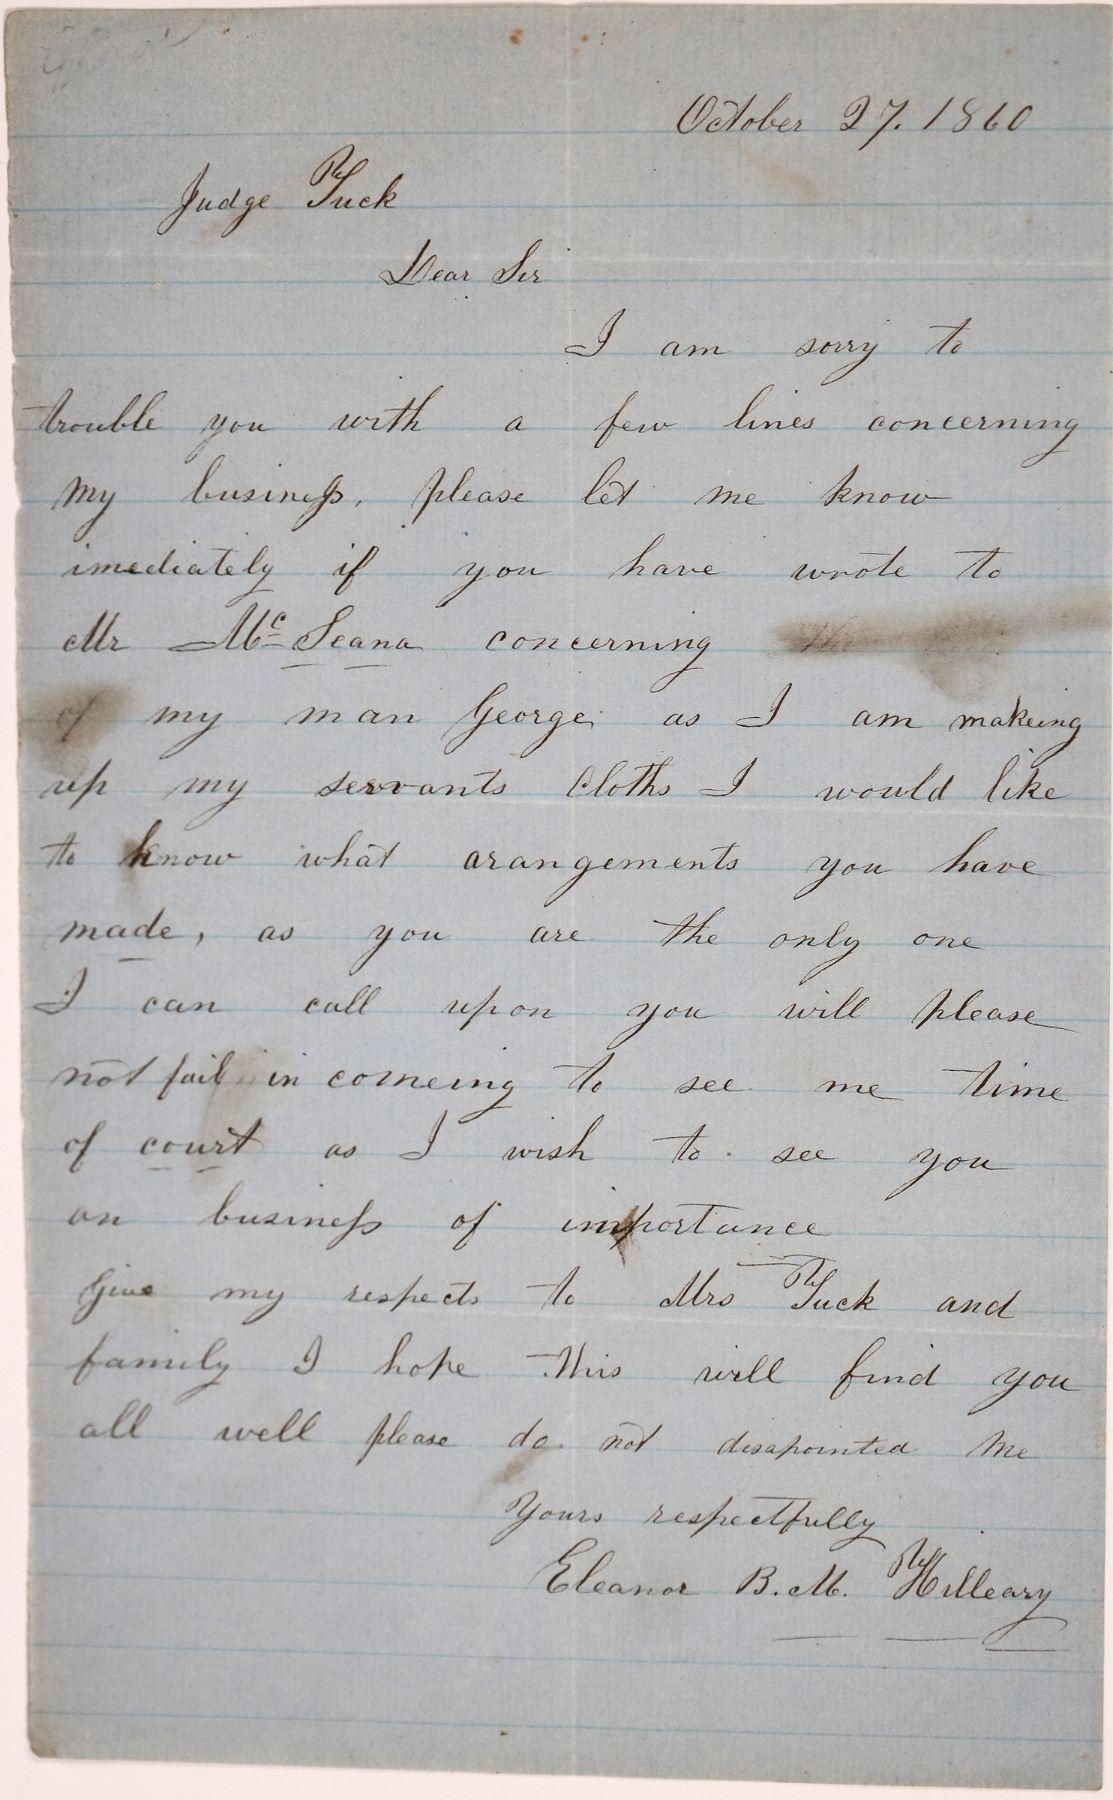 October 27. 1860
Judge Tuck
Dear Sir
I am sorry to
trouble you with a few lines concerning
my business, please let me know
imediately if you have wrote to
Mr Mc Seana concerning
of my man George as I am makeing
up my servants cloths I would like
to know what arangements you have
made, as you are the only one
I can call upon you will please
not fail in comeing to see me time
of court as I wish to see you
on business of importance
Give my respects to Mrs Tuck and
family I hope this will find you
all well please do not disapointed me
Yours respectfully
Eleanor B. M. Hilleary